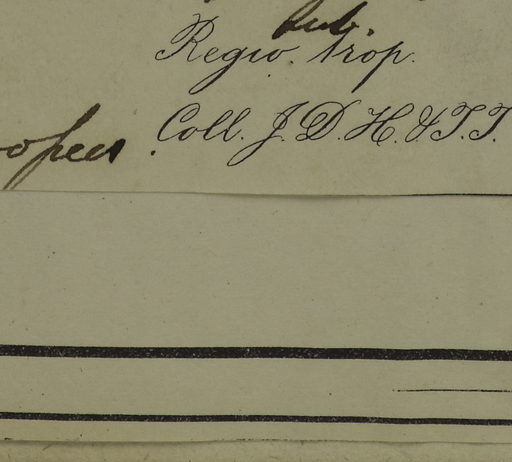 sub.
Regio. trop.
Coll. J. D. H. & T. T.